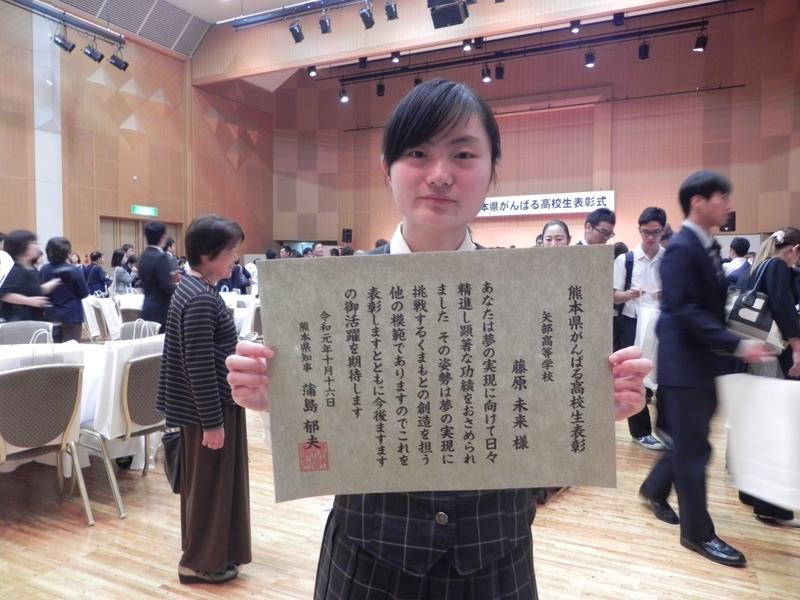 熊本県がんばる高校生表彰
矢部高等学校
藤原 未来 様
あなたは夢の実現に向けて日々
精進し顕著な功績をおさめられ
ました その姿勢は夢の実現に
挑戦するくまもとの創造を担う
他の模範でありますのでこれを
表彰しますとともに今後ますます
の御活躍を期待します
令和元年十月十六日
熊本県知事 蒲島 郁夫
本県がんばる高校生表彰式